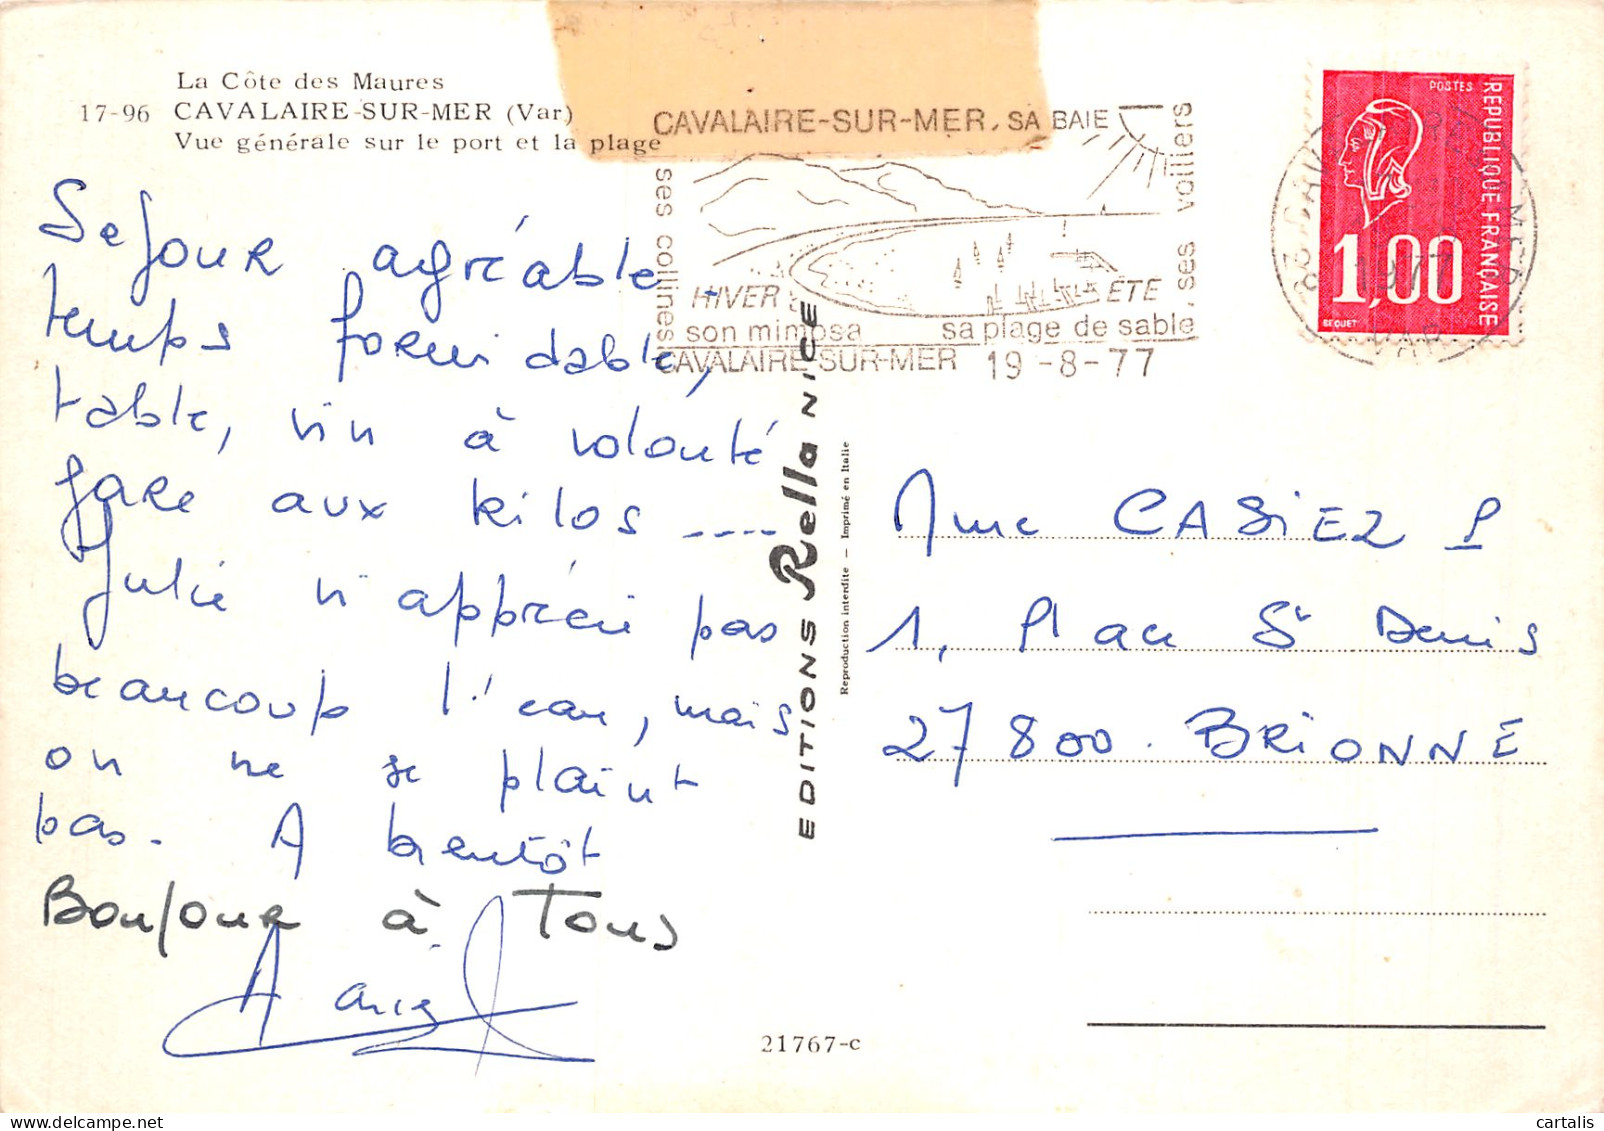 La Côte des Maures
17-96 CAVALAIRE-SUR-MER (Var)
Vue générale sur le port et la plage
CAVALAIRE-SUR-MER, SA BAIE
ses collines
ses voiliers
HIVER
son mimosa
ÉTÉ
sa plage de sable
CAVALAIRE-SUR-MER 19-8-77
POSTES
REPUBLIQUE FRANÇAISE
1,00
BEQUET
1977
VAR
Sejour agréable
temps formidable,
table, vin à volonté
gare aux kilos ----
Julie n'apprécie pas
beaucoup l'eau, mais
on ne se plaint
pas. A bientôt
Bonjour à Tous
EDITIONS Rella NICE
Reproduction interdite — Imprimé en Italie
Mme CASIEZ P
1, Place St Denis
27800. BRIONNE
21767-c
cartalis